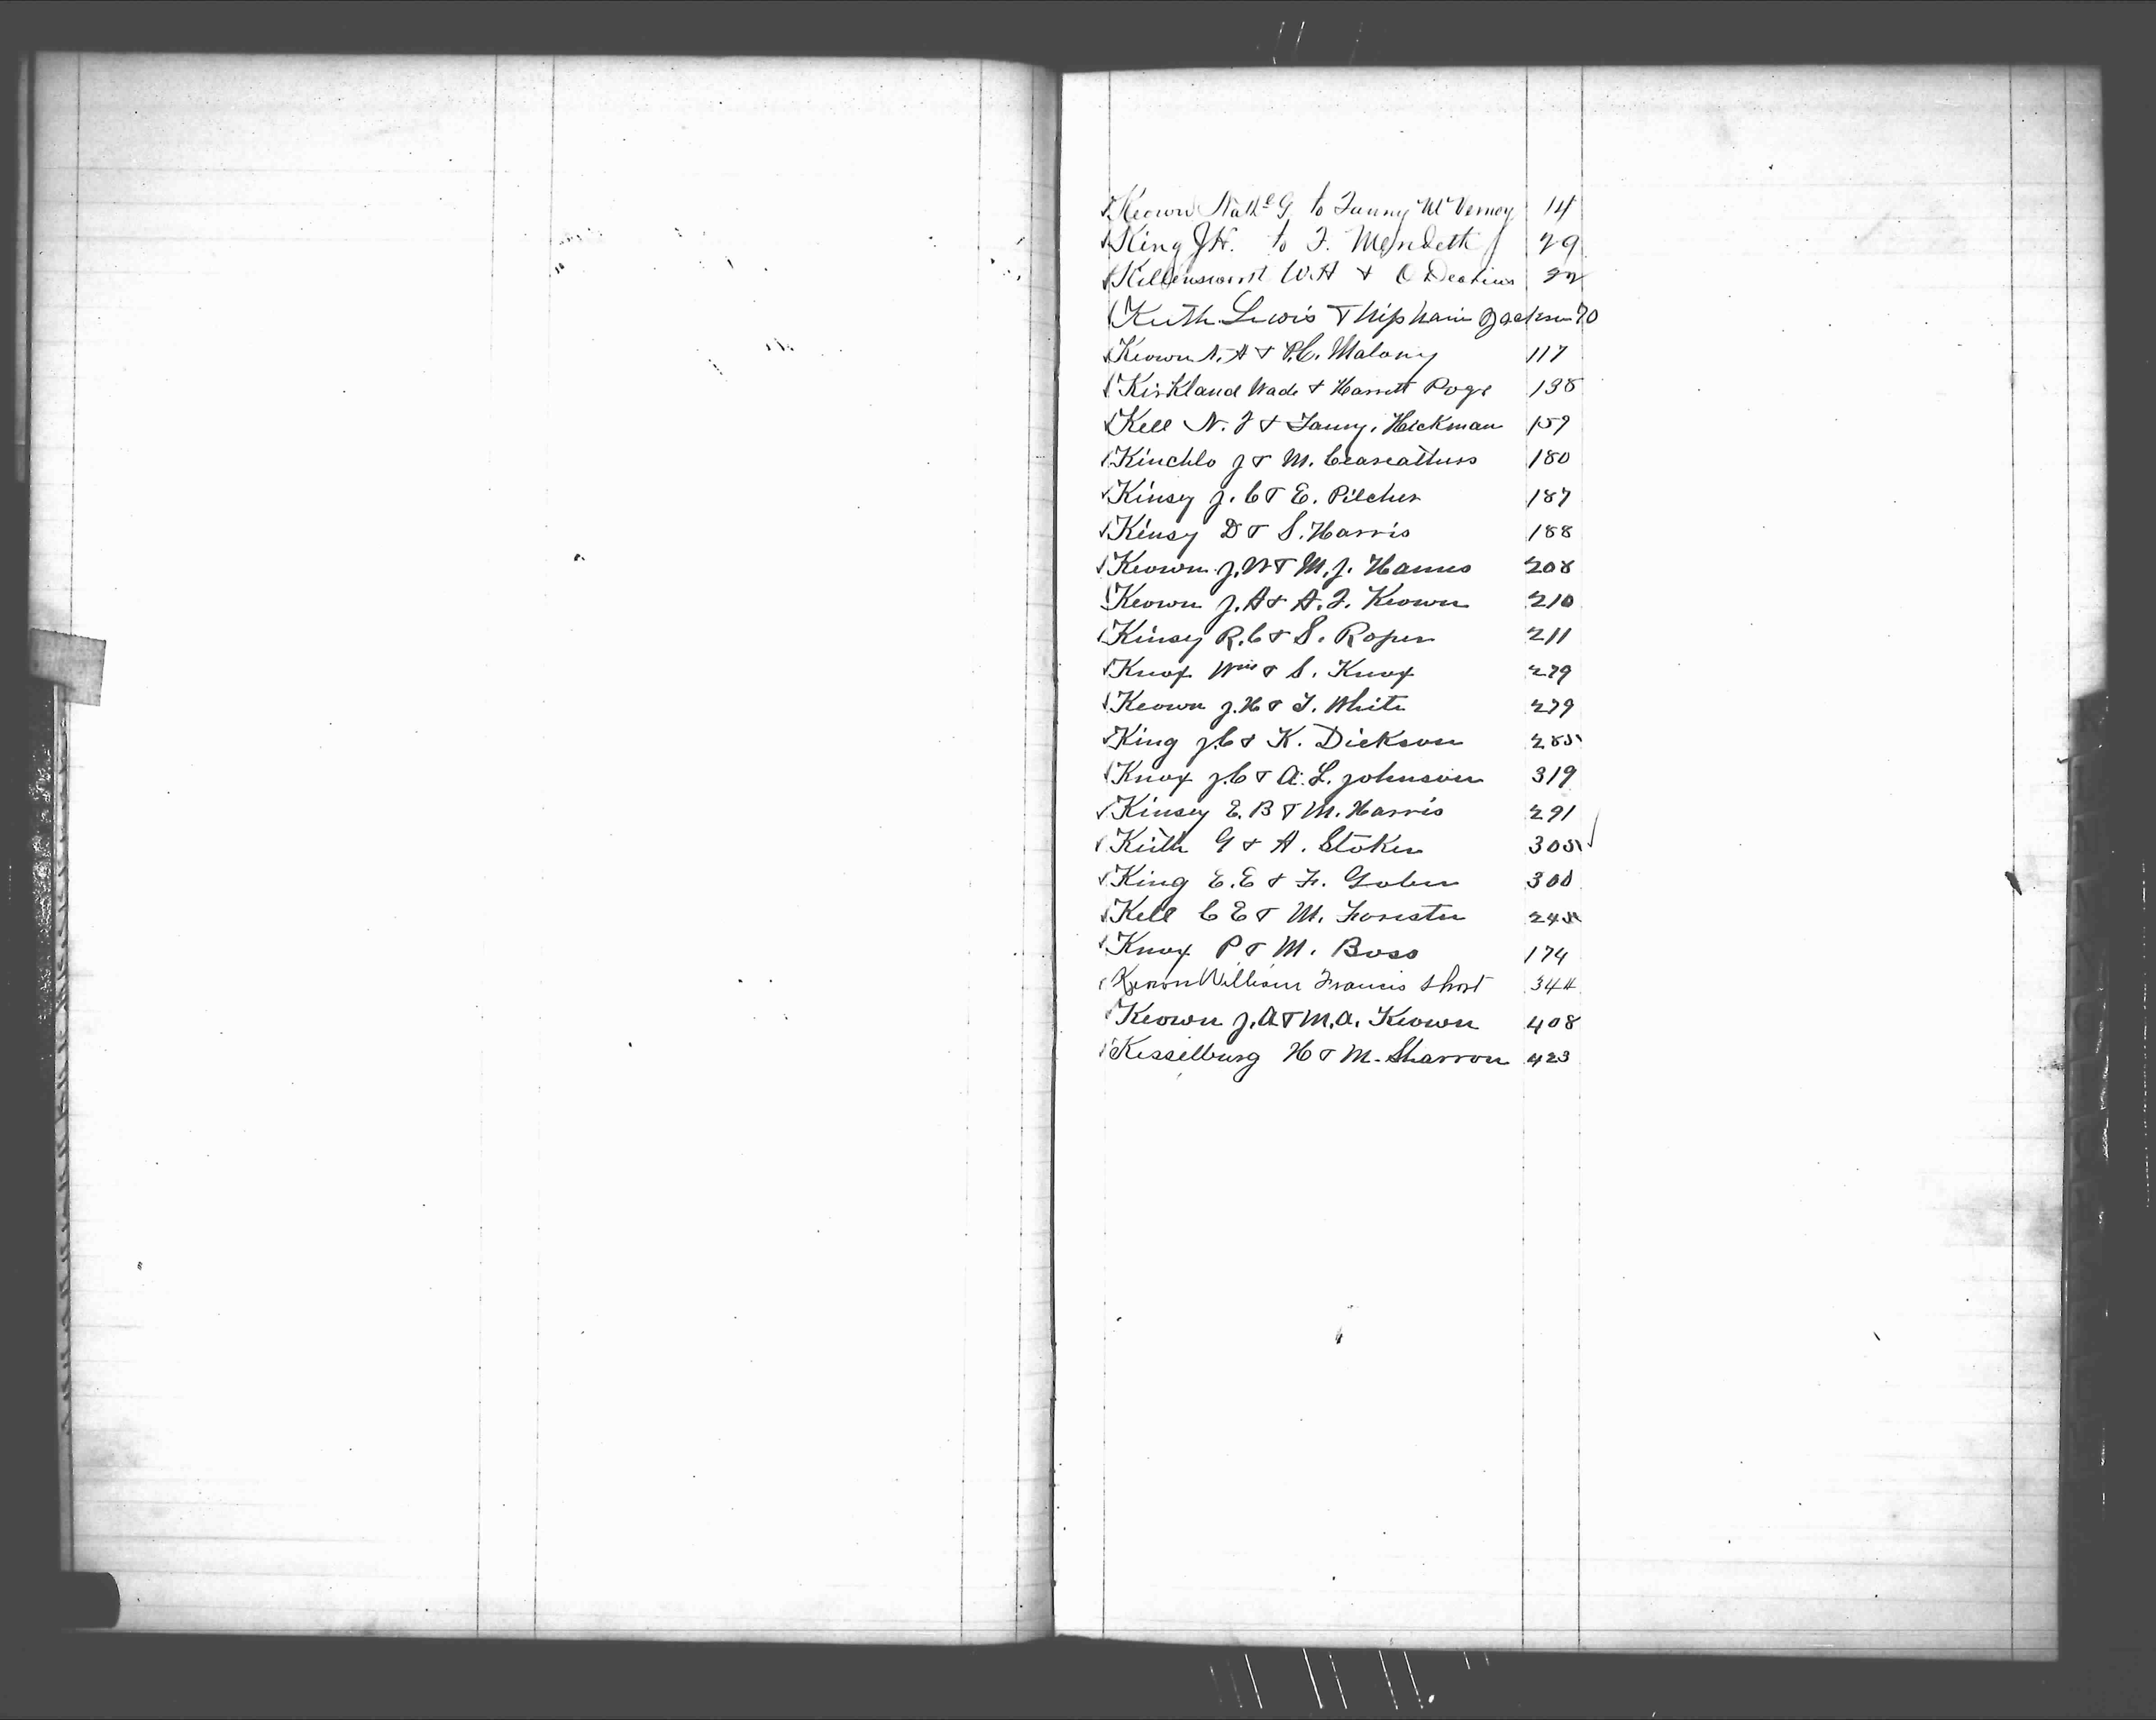 Keown Nathl G to Fanny McVerney 14
King J.H. to F. Meredeth 29
W.H & O Deakins
Keith Lewis & Jackson 70
Keown A. A & P.C. Malony 117
Kirkland Wade & Harrett Page 138
Kell N. F & Fanny. Hickman 159
Kinchlo J & M. 180
Kinsey J. C & E. Pilcher 187
Kinsy D & S. Harris 188
Keown J. W & M. J. 208
Keown J. A & A. F. Keown 210
Kinsey R. C & S. Roper 211
Knox Wm & S. Knox 279
Keown J. H & T. White 279
King J. C & K. Dickson 285
Knox J. C & A. L. Johnson 319
Kinsey E. B & M. Harris 291
Keith G & A. Stoker 305
King E. E & F. Gober 300
Kell C E & M. Forester 245
Knox P & M. Boss 174
Keown William Francis Short 344
Keown J. A & M. A. Keown 408
Kesselburg H & M. Sharron 423